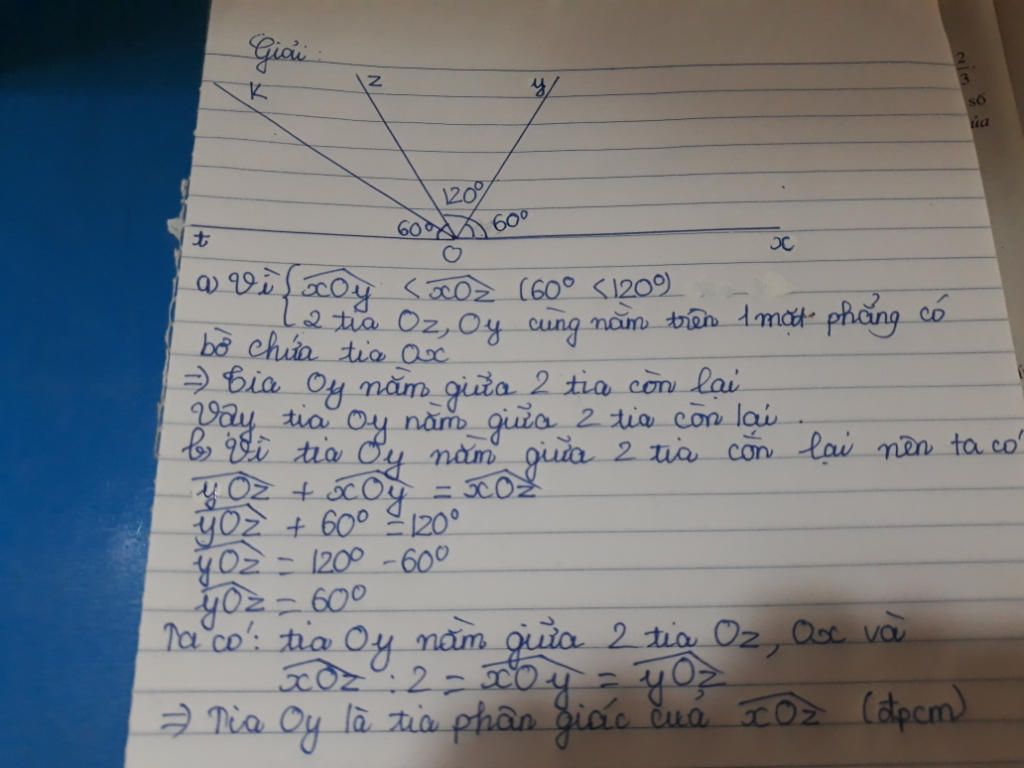 Giải:
K z y
120°
60° 60°
t O x
a) Vì { xOy < xOz (60° < 120°)
2 tia Oz, Oy cùng nằm trên 1 mặt phẳng có
bờ chứa tia Ox
=> Tia Oy nằm giữa 2 tia còn lại
Vậy tia Oy nằm giữa 2 tia còn lại.
b) Vì tia Oy nằm giữa 2 tia còn lại nên ta có
yOz + xOy = xOz
yOz + 60° = 120°
yOz = 120° - 60°
yOz = 60°
Ta có: tia Oy nằm giữa 2 tia Oz, Ox và
xOz : 2 = xOy = yOz
=> Tia Oy là tia phân giác của xOz (đpcm)
2/3.
số
ủa